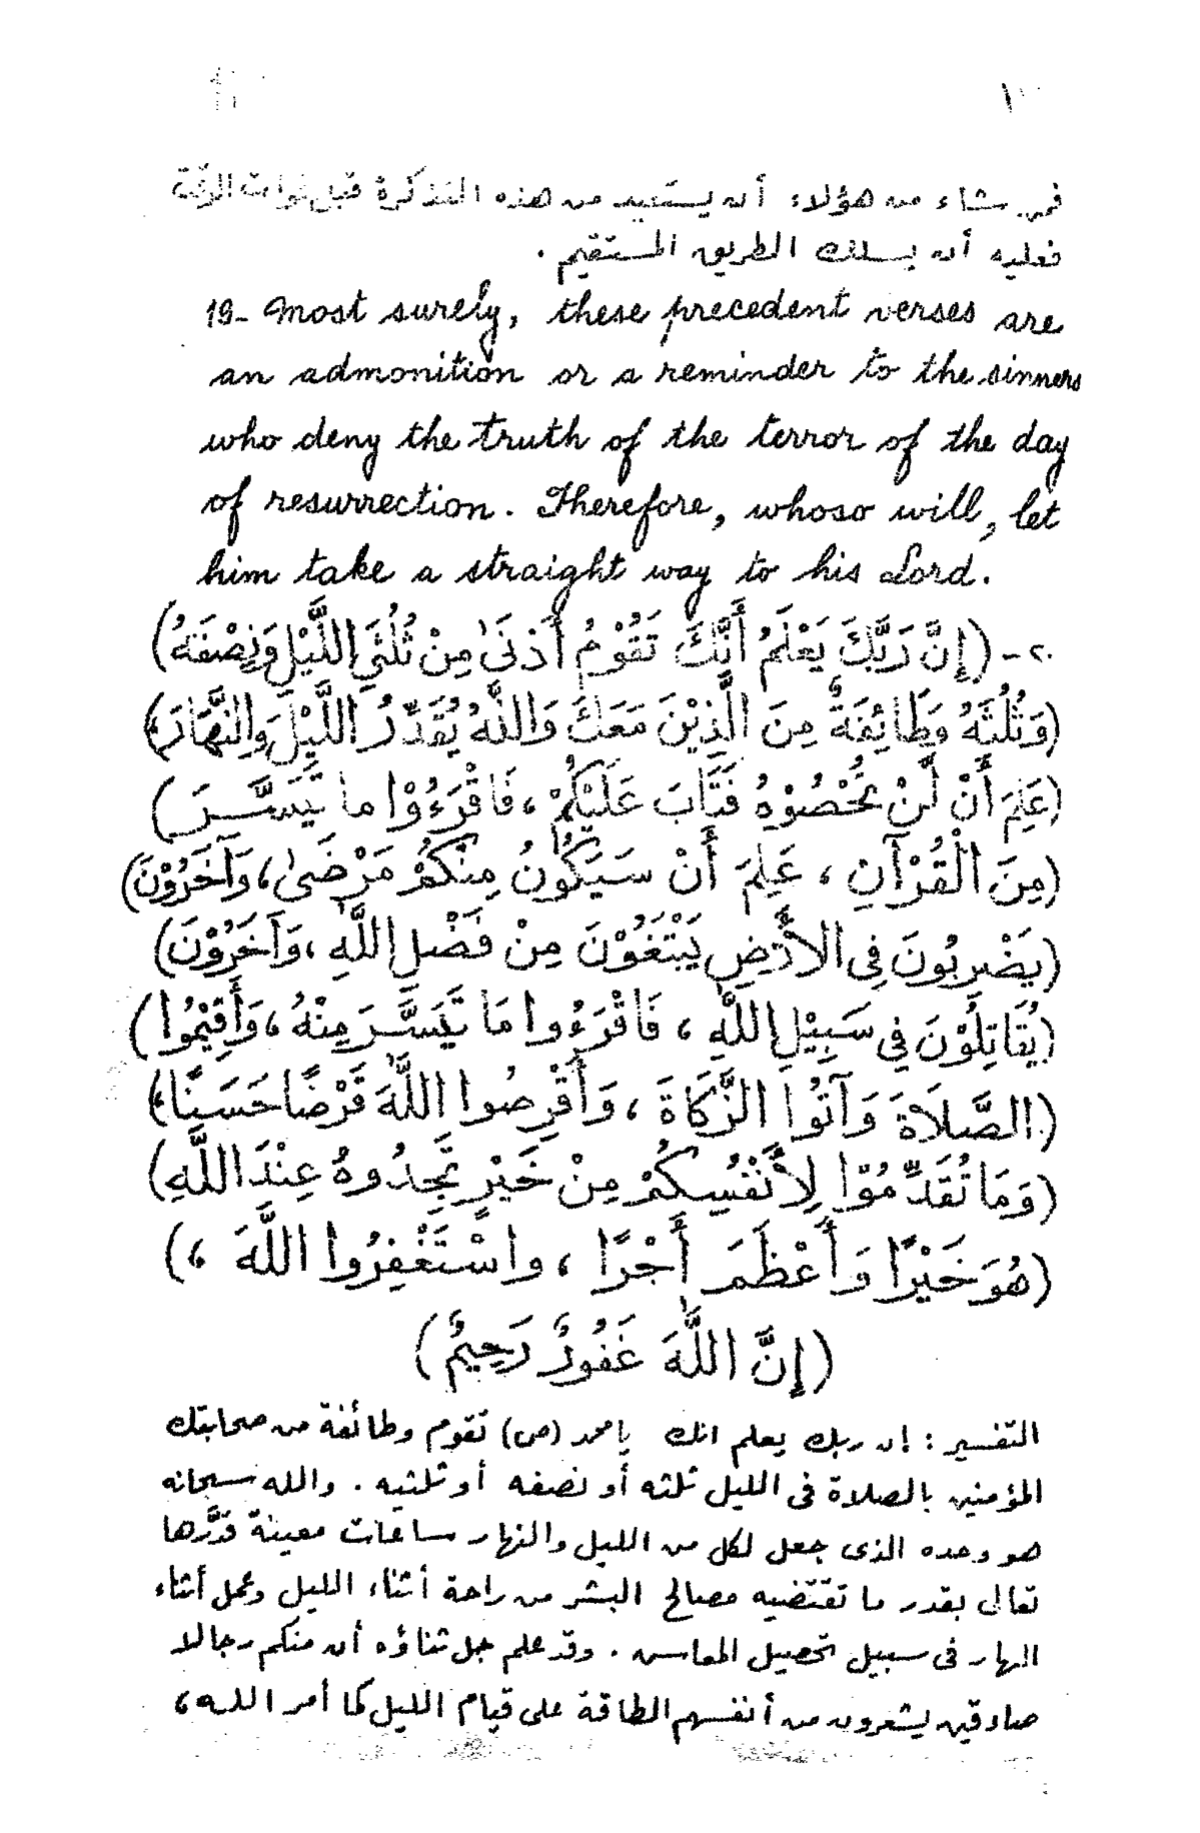 فمن شاء من هؤلاء أن يستفيد من هذه التذكرة قبل فوات الوقت
فعليه أن يسلك الطريق المستقيم .
19- Most surely, these precedent verses are
an admonition or a reminder to the sinners
who deny the truth of the terror of the day
of resurrection. Therefore, whoso will, let
him take a straight way to his Lord.
٢٠- (إِنَّ رَبَّكَ يَعْلَمُ أَنَّكَ تَقُوْمُ أَدْنَىٰ مِنْ ثُلُثَيِ اللَّيْلِ وَنِصْفَهُ)
(وَثُلُثَهُ وَطَائِفَةٌ مِنَ الَّذِيْنَ مَعَكَ وَاللَّهُ يُقَدِّرُ اللَّيْلَ وَالنَّهَارَ،)
(عَلِمَ أَنْ لَّنْ تُحْصُوْهُ فَتَابَ عَلَيْكُمْ ، فَاقْرَءُوْا ما تَيَسَّرَ)
(مِنَ الْقُرْآنِ ، عَلِمَ أَنْ سَيَكُونُ مِنْكُمْ مَرْضَىٰ ، وَآخَرُوْنَ)
(يَضْرِبُونَ فِى الأَرْضِ يَبْتَغُوْنَ مِنْ فَضْلِ اللَّهِ ، وَآخَرُوْنَ)
(يُقَاتِلُوْنَ فِي سَبِيْلِ اللَّهِ ، فَاقْرَءُوا مَا تَيَسَّرَ مِنْهُ ، وَأَقِيْمُوا)
(الصَّلَاةَ وَآتُوا الزَّكَاةَ ، وَأَقْرِضُوا اللَّهَ قَرْضًا حَسَنًا ،)
(وَمَا تُقَدِّمُوْا لِأَنْفُسِكُمْ مِنْ خَيْرٍ تَجِدُوهُ عِنْدَ اللَّهِ)
(هُوَ خَيْرًا وَأَعْظَمَ أَجْرًا ، واسْتَغْفِرُوا اللَّهَ ،)
(إِنَّ اللَّهَ غَفُورٌ رَحِيمٌ)
التفسير : إن ربك يعلم انك يا محمد (ص) تقوم وطائفة من صحابتك
المؤمنين بالصلاة فى الليل ثلثه أو نصفه أو ثلثيه . والله سبحانه
هو وحده الذى جعل لكل من الليل والنهار ساعات معينة قدَّرها
تعالى بقدر ما تقتضيه مصالح البشر من راحة أثناء الليل وعمل أثناء
النهار فى سبيل تحصيل المعاش . وقد علم جل ثناؤه أن منكم رجالا
صادقين يشعرون من أنفسهم الطاقة على قيام الليل كما أمر الله ،